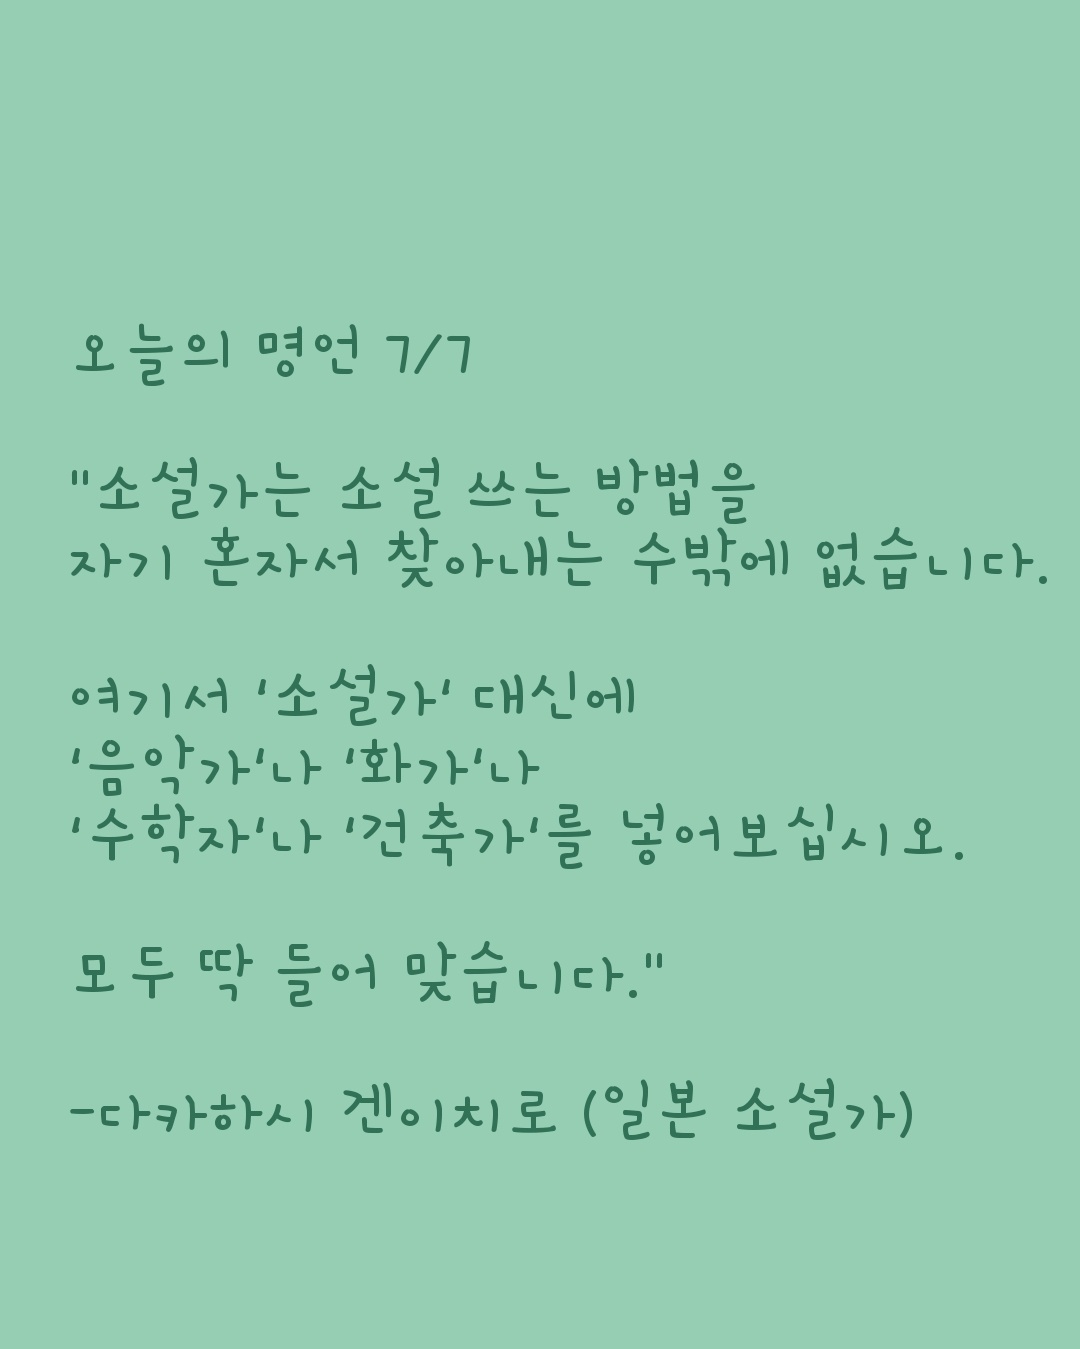 오늘의 명언 7/7
"소설가는 소설 쓰는 방법을
자기 혼자서 찾아내는 수밖에 없습니다.
여기서 '소설가' 대신에
'음악가'나 '화가'나
'수학자'나 '건축가'를 넣어보십시오.
모두 딱 들어 맞습니다."
-다카하시 겐이치로 (일본 소설가)